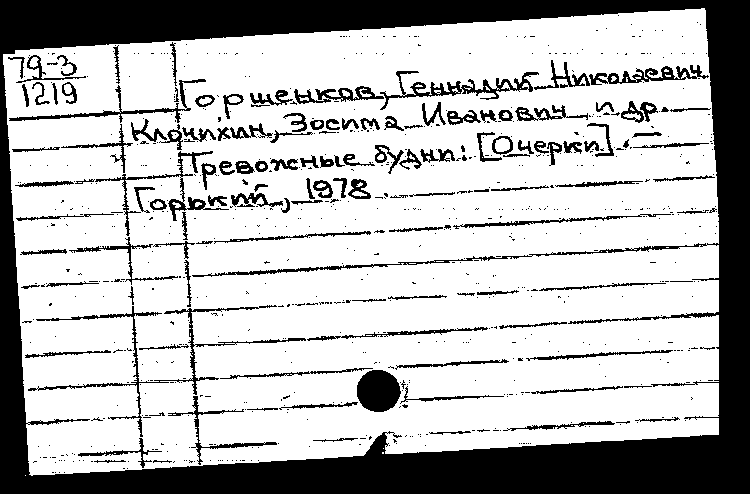 79-3
1219
Горшенков, Геннадий Николаевич
Клочихин, Зосима Иванович и др.
Тревожные будни: [Очерки]. —
Горький, 1978.